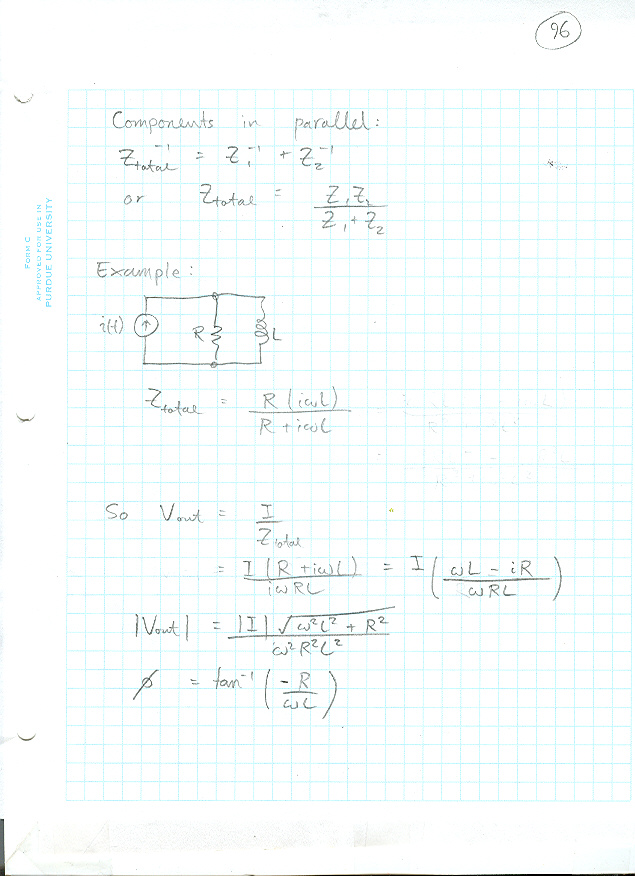 96
FORM C
APPROVED FOR USE IN
PURDUE UNIVERSITY
Components in parallel:
Z_total^-1 = Z_1^-1 + Z_2^-1
or Z_total = Z_1 Z_2 / (Z_1 + Z_2)
Example:
i(t) R L
Z_total = R (iωL) / (R + iωL)
So V_out = I / Z_total
= I (R + iωL) / (iωRL) = I ( (ωL - iR) / (ωRL) )
|V_out| = |I| √(ω²L² + R²) / (ω²R²L²)
φ = tan^-1 ( -R / (ωL) )